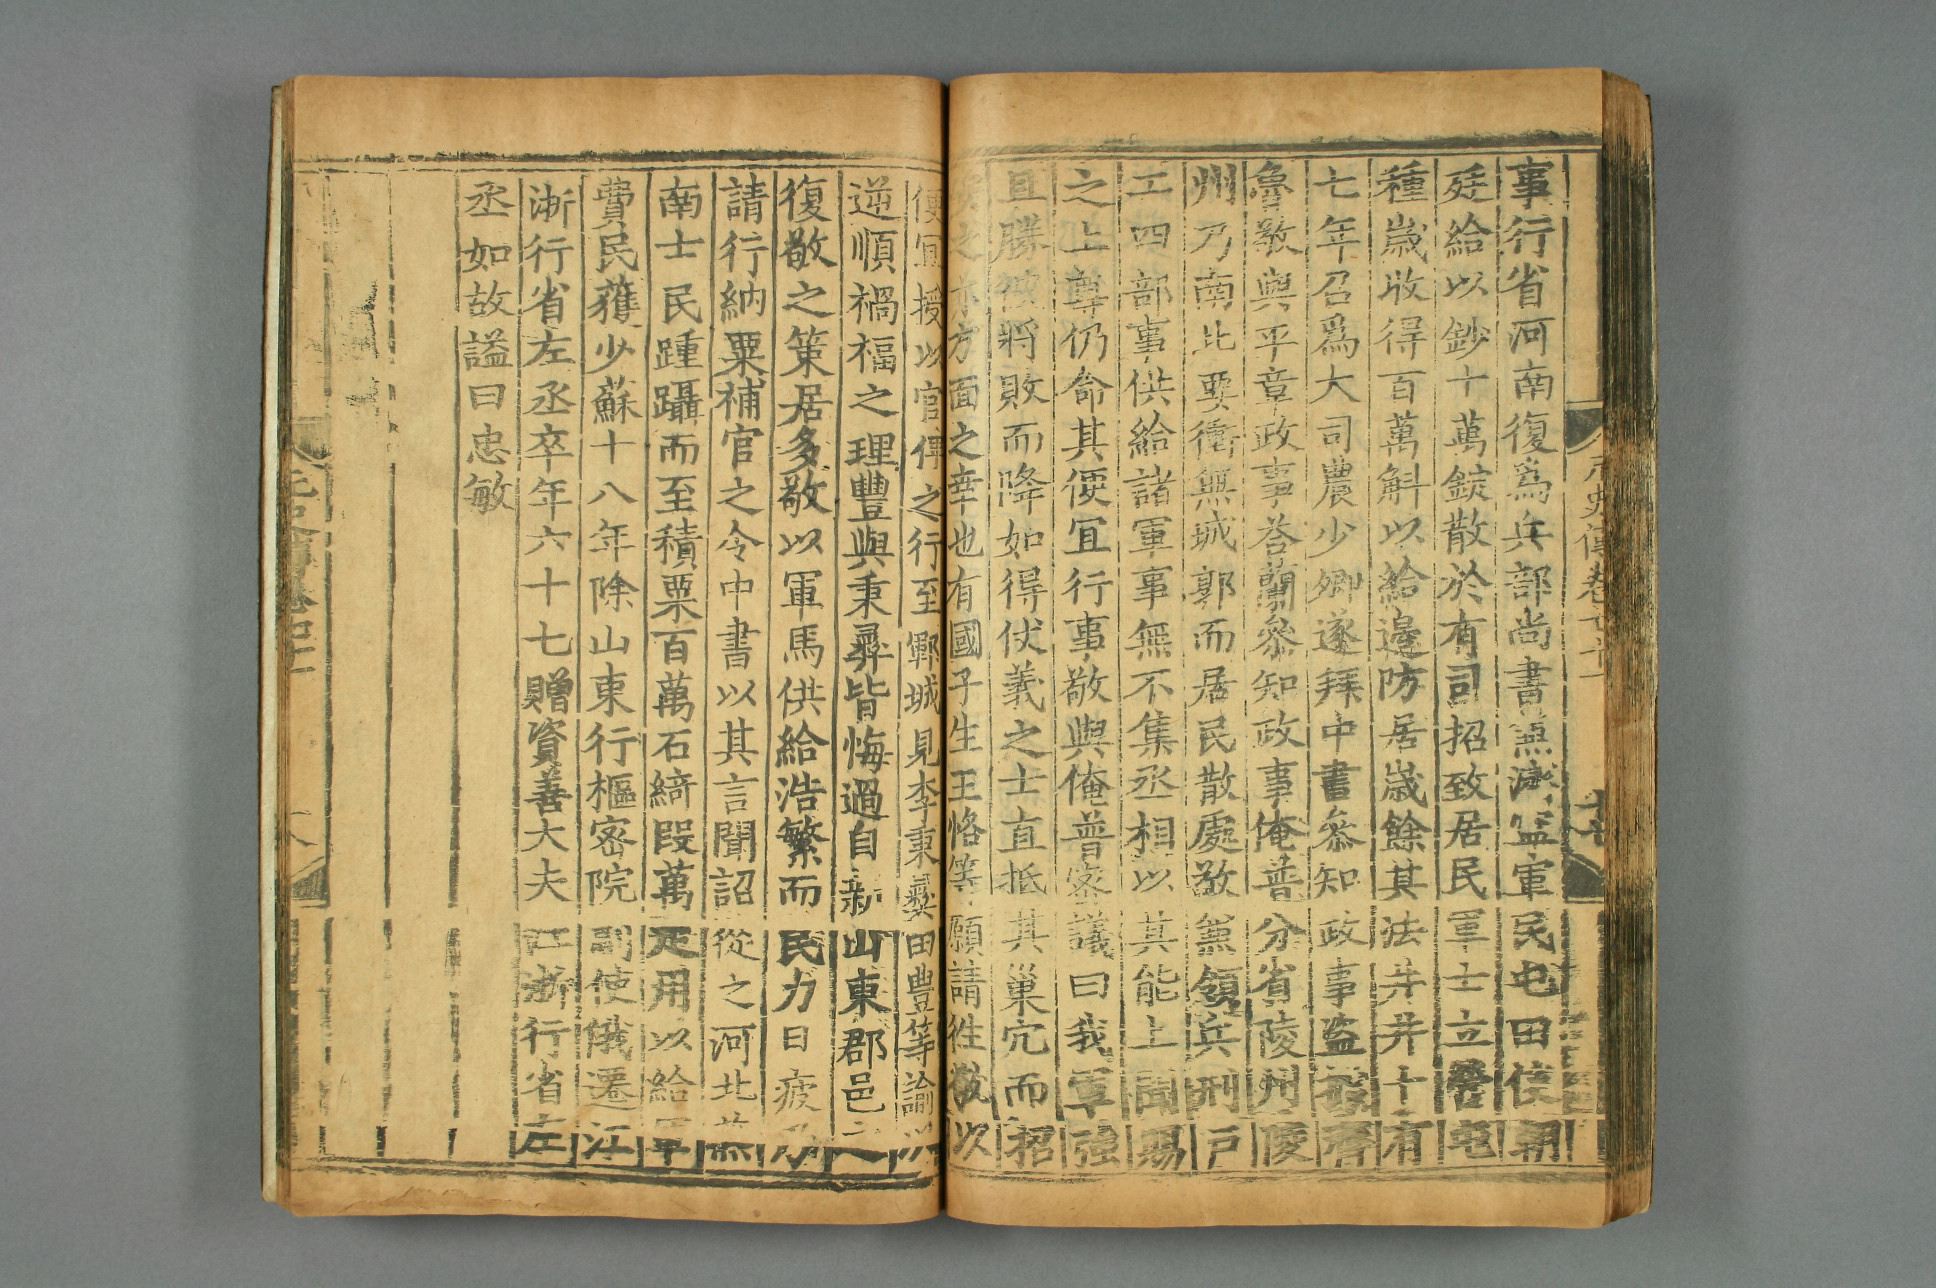 事行省河南復爲兵部尚書兼濟寧軍民屯田使朝
廷給以鈔十萬錠散於有司招致居民軍士立營屯
種歲收得百萬斛以給邊防居歲餘其法井井十有
七年召爲大司農少卿遂拜中書參知政事盜據齊
魯敬與平章政事荅蘭參知政事俺普分省陵州陵
州乃南北要衝無城郭而居民散處敬兼領兵刑戶
工四部事供給諸軍事無不集丞相以其能上聞賜
之上尊仍命其便宜行事敬與俺普密議曰我軍強
且勝彼將敗而降如得伏義之士直抵其巢穴而招
安之亦方面之幸也有國子生王恪等願請往敬以
便宜授以官俾之行至鄆城見李秉彝田豐等諭以
逆順禍福之理豐與秉彝皆悔過自新山東郡邑
復敬之策居多敬以軍馬供給浩繁而民力日疲乃
請行納粟補官之令中書以其言聞詔從之河北燕
南士民踵躡而至積粟百萬石綺段萬疋用以給軍
費民獲少蘇十八年除山東行樞密院副使俄遷江
浙行省左丞卒年六十七贈資善大夫江浙行省左
丞如故謚曰忠敏